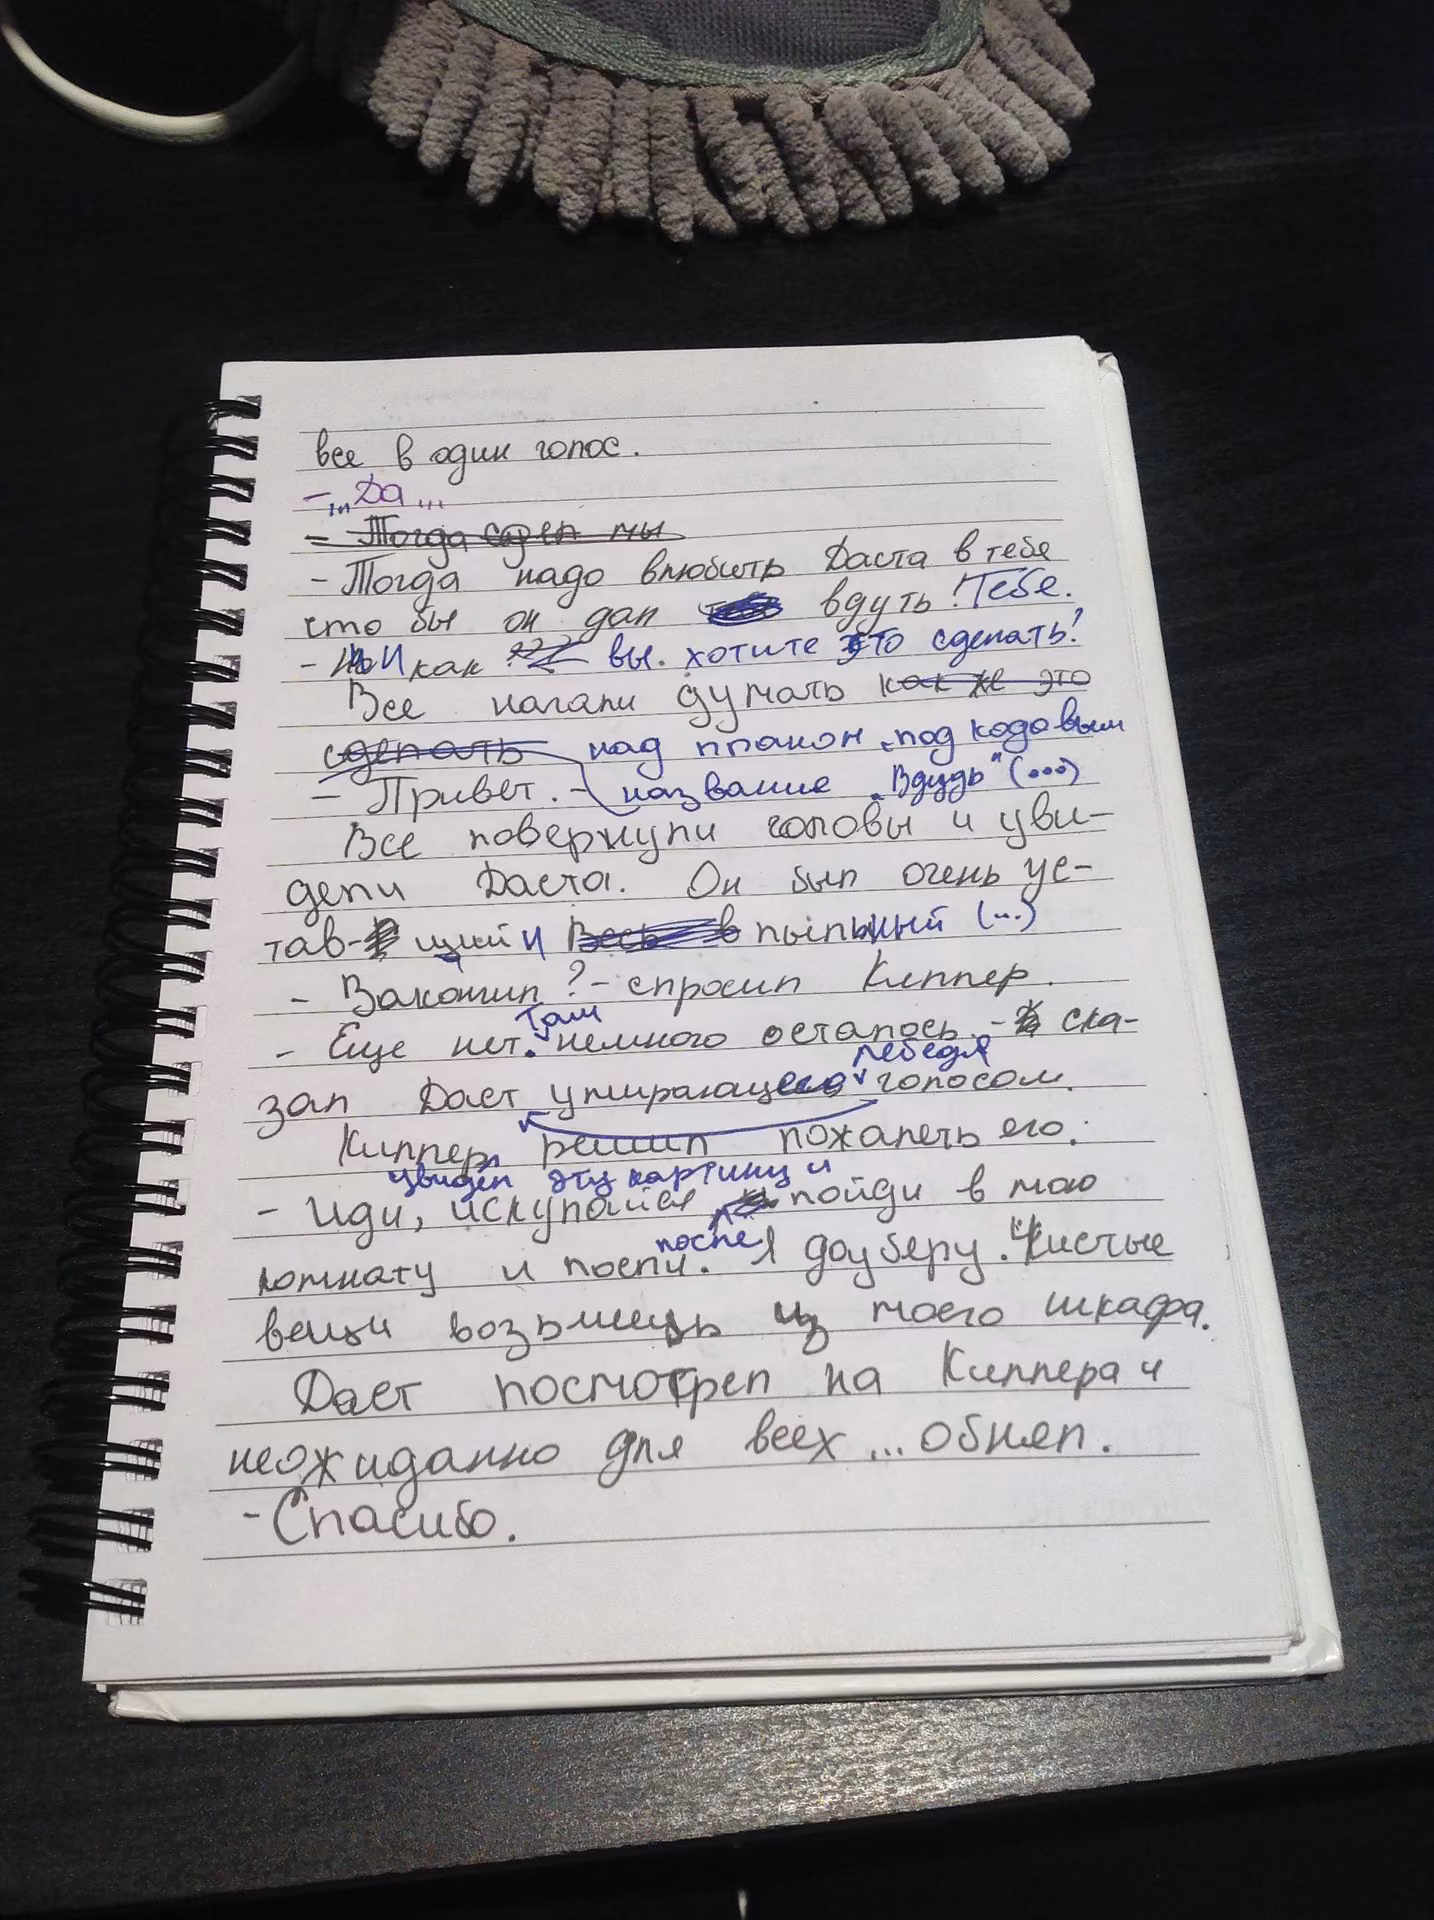 все в один голос.
- „Да...
- Тогда надо влюбить Даста в тебе
что бы он дал вдуть! Тебе.
- И как вы. хотите это сделать?
Все начали думать как же это
сделать над планом „под кодовым
- Привет. - название „Вдудь" (...)
Все повернули головы и уви-
дели Даста. Он был очень ус-
тав- щий и пыльный (...)
- Закончил? - спросил Киллер.
там
- Еще нет. немного осталось. - ска-
лебедя
зал Даст умирающего голосом.
Киллер решил пожалеть его.
увидел эту картину и
- Иди, искупайся пойди в мою
после
комнату и поспи. Я доуберу. Чистые
вещи возьмешь из моего шкафа.
Даст посмотрел на Киллера и
неожиданно для всех ... обнял.
- Спасибо.